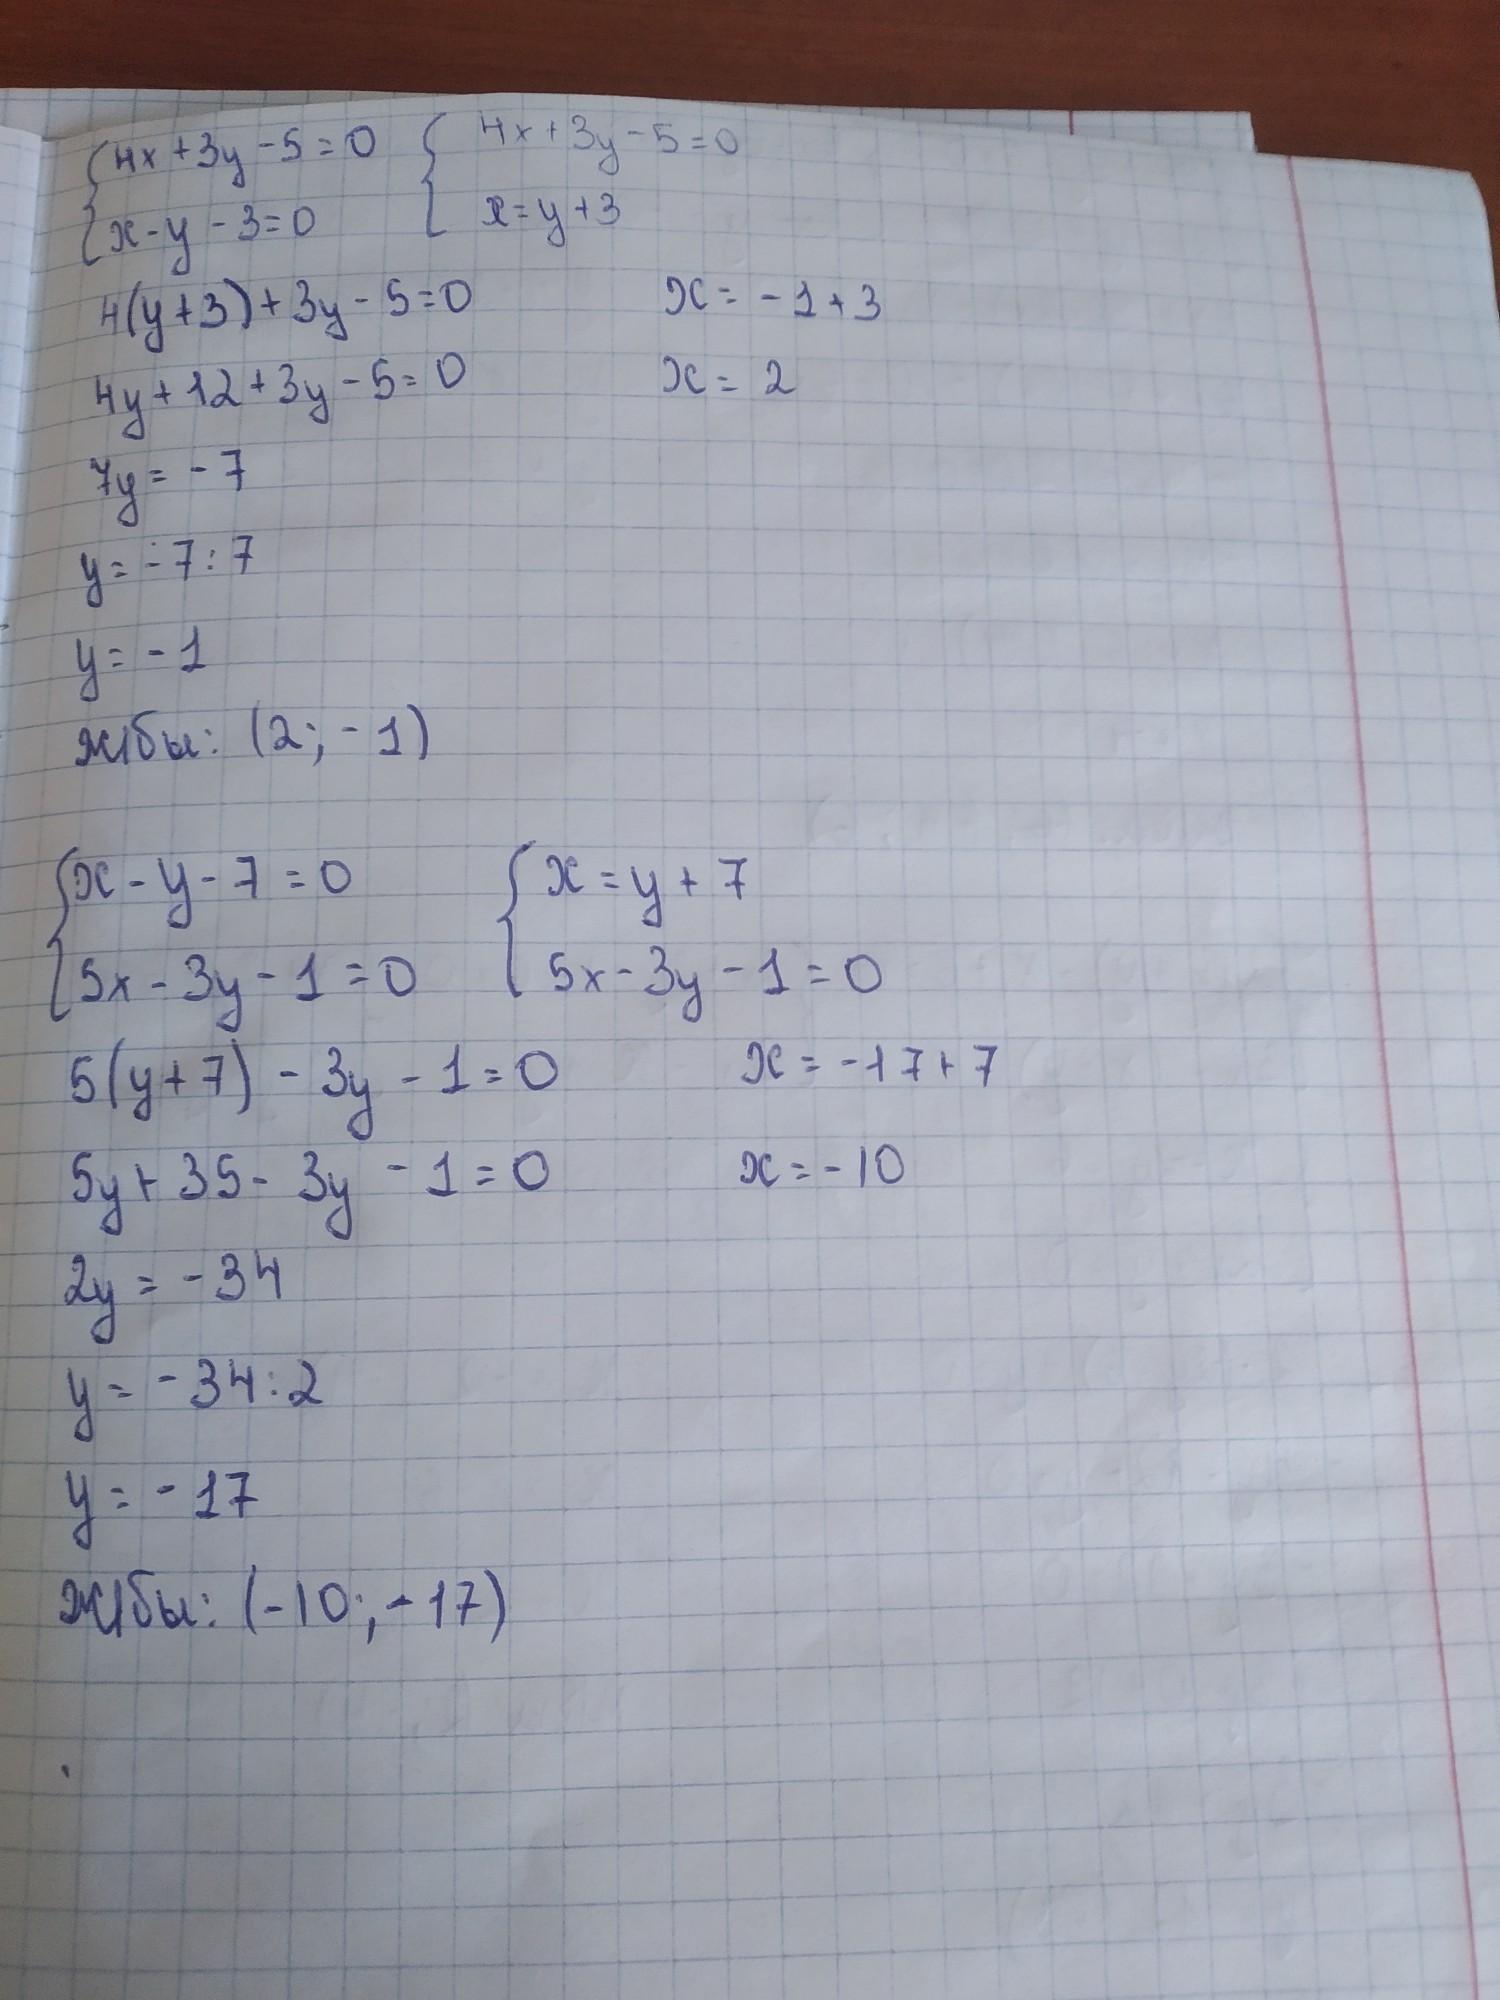 4x+3y-5=0 4x+3y-5=0
x-y-3=0 x=y+3
4(y+3)+3y-5=0 x=-1+3
4y+12+3y-5=0 x=2
7y=-7
y=-7:7
y=-1
Ж/бы: (2;-1)
x-y-7=0 x=y+7
5x-3y-1=0 5x-3y-1=0
5(y+7)-3y-1=0 x=-17+7
5y+35-3y-1=0 x=-10
2y=-34
y=-34:2
y=-17
Ж/бы: (-10;-17)